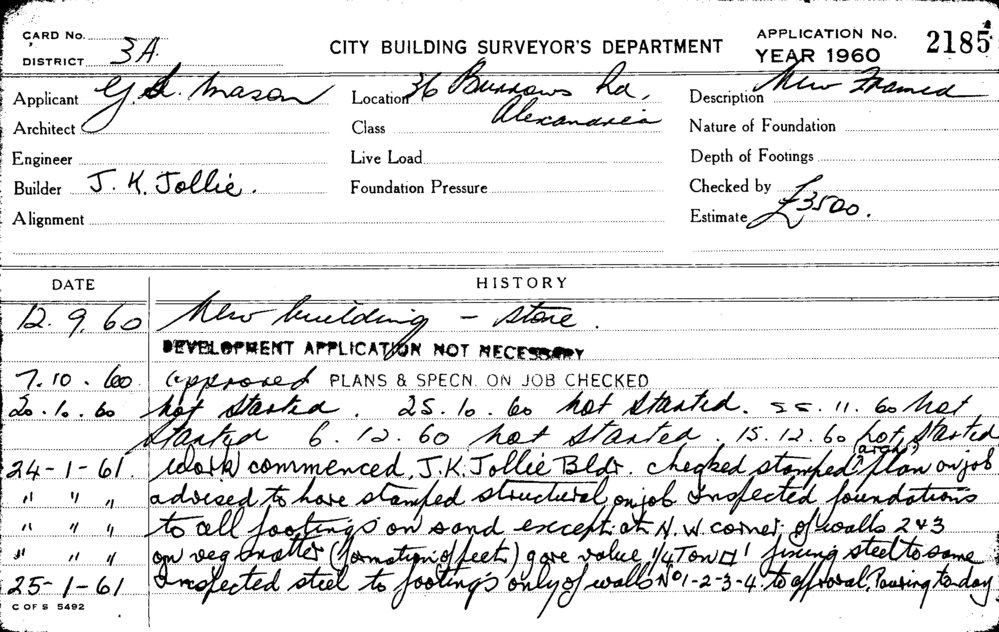 CARD No.
DISTRICT 3A
CITY BUILDING SURVEYOR'S DEPARTMENT
APPLICATION No. 2185
YEAR 1960
Applicant G. A. Mason
Location 36 Burrows Rd,
Alexandria
Description New Framed
Architect
Class
Nature of Foundation
Engineer
Live Load
Depth of Footings
Builder J. K. Jollie.
Foundation Pressure
Checked by
Alignment
Estimate £3500.
DATE HISTORY
12. 9. 60 New building - store.
DEVELOPMENT APPLICATION NOT NECESSARY
7. 10. 60. approved PLANS & SPECN. ON JOB CHECKED
20. 10. 60 not started. 25. 10. 60 not started. 11. 60 not
started 6. 12. 60 not started. 15. 12. 60 not started
24-1-61. Work commenced, J.K. Jollie Bldr. checked stamped arch plan on job
" " " advised to have stamped structural on job Inspected foundations
" " " to all footings on sand except at N.W. corner of walls 2 & 3
" " " on veg matter (formation of peet) gave value 1/4 Ton □' fixing steel to same
25-1-61 Inspected steel to footings only of walls No 1-2-3-4 to approval. Pouring today
C OF S 5492